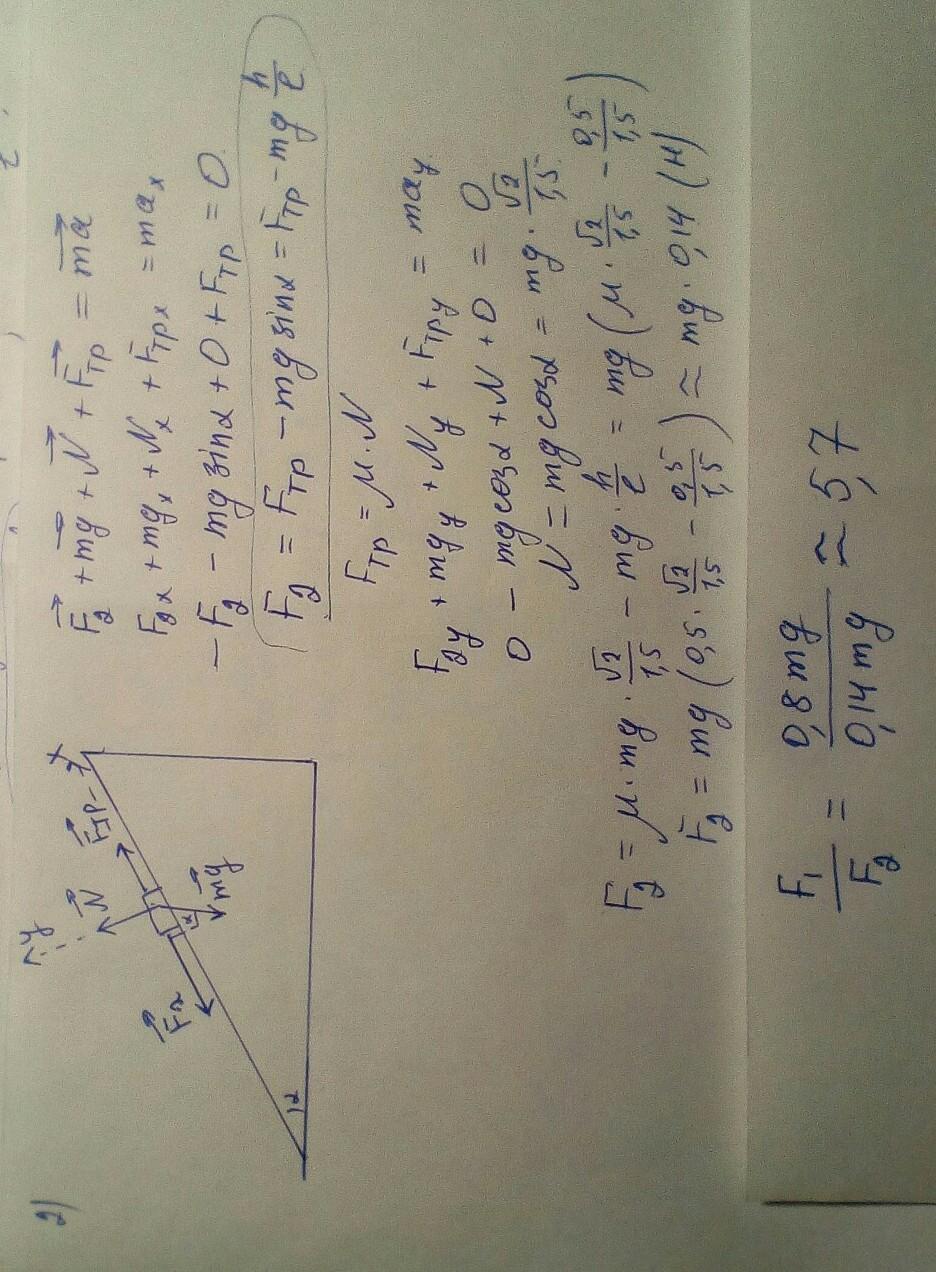 2)
y
N⃗
F⃗тр
x
F⃗₂
α
mg⃗
α
F⃗₂ + mg⃗ + N⃗ + F⃗тр = ma⃗
F₂x + mgx + Nx + Fтрx = max
−F₂ − mg sinα + 0 + Fтр = 0
F₂ = Fтр − mg sinα = Fтр − mg h/ℓ
Fтр = μ·N
F₂y + mgy + Ny + Fтрy = may
0 − mg cosα + N + 0 = 0
N = mg cosα = mg · √2/1,5
F₂ = μ·mg·√2/1,5 − mg · h/ℓ = mg (μ · √2/1,5 − 0,5/1,5)
F₂ = mg (0,5 · √2/1,5 − 0,5/1,5) ≃ mg · 0,14 (Н)
F₁/F₂ = 0,8 mg/0,14 mg ≃ 5,7